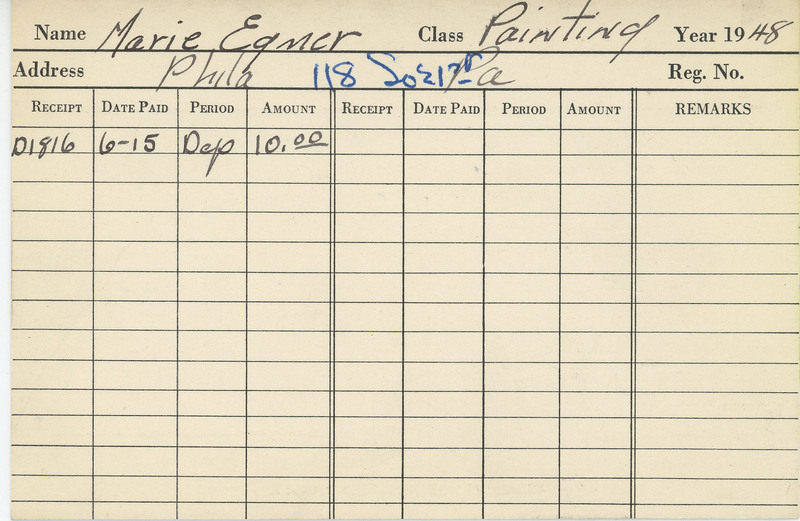 Name Marie Egner Class Painting Year 1948
Address Phila 118 So 21st Pa Reg. No.
RECEIPT DATE PAID PERIOD AMOUNT RECEIPT DATE PAID PERIOD AMOUNT REMARKS
D1816 6-15 Dep 10.00